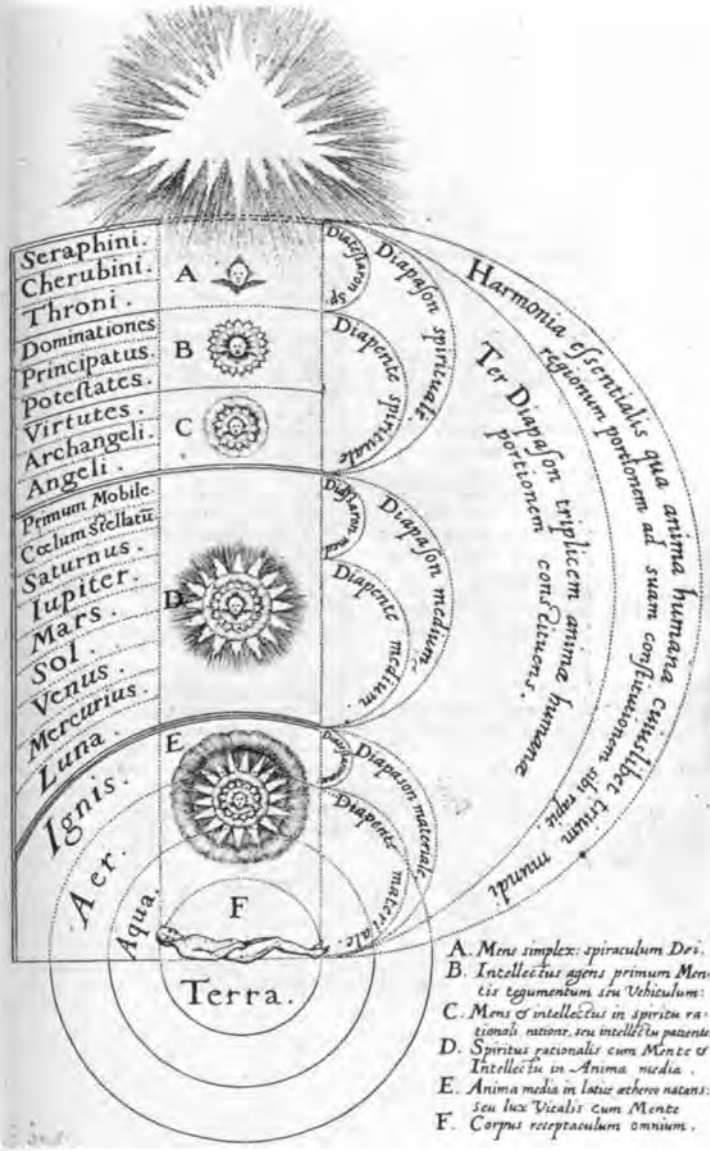 Seraphini.
Cherubini.
Throni.
Dominationes
Principatus.
Poteſtates.
Virtutes.
Archangeli.
Angeli.
Primum Mobile
Cœlum ſtellatũ
Saturnus.
Iupiter.
Mars.
Sol.
Venus.
Mercurius.
Luna.
Ignis.
Aer.
Aqua.
Terra.
A
B
C
D
E
F
Diateſſaron sp.
Diapaſon spirituale.
Diapente spirituale
Diapaſon medium
Diapente medium
Diapason materiale
Diapente materiale.
Ter Diapaſon triplicem animæ humanæ
portionem conſtituens.
Harmonia eſsentialis qua anima humana cuiuslibet trium mundi
regionum portionem ad suam conſtitutionem sibi rapit.
A. Mens simplex: spiraculum Dei.
B. Intellectus agens primum Men-
tis tegumentum seu Vehiculum:
C. Mens & intellectus in spiritu ra-
tionali ratione, seu intellectu patiente
D. Spiritus rationalis cum Mente &
Intellectu in Anima media.
E. Anima media in latice æthereo natans:
seu lux Vitalis cum Mente
F. Corpus receptaculum omnium.